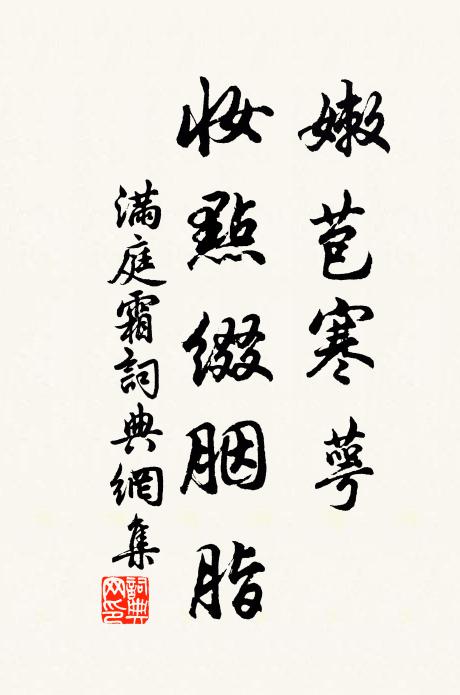 嫩苞寒萼
妝點綴胭脂
滿庭霜詞典網集
詞典網印